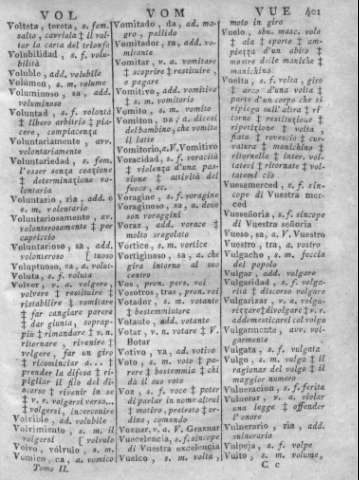 VOL
VOM
VUE 401
Volteta, voreta, s. fem.
salto, cavriola ‡ il vol-
tar la carta del trionfo
Volubilidad, s. f. volu-
bilità
Voluble, add. volubile
Volumen, s. m. volume
Voluminoso, sa, add.
voluminoso
Voluntad, s. f. volontà
‡ libero arbitrio ‡ pia-
cere, compiacenza
Voluntariamente, avv.
volontariamente
Voluntariedad, s. fem.
l'esser senza coazione
‡ determinazione vo-
lontaria
Voluntario, ria, add. e
s. m. volontario
Voluntariosamente, av.
volonterosamente ‡ per
capriccio
Voluntarioso, sa, add.
volonteroso [tuoso
Voluptuoso, sa, a. volut-
Voluta, s. f. voluta
Volver, v. a. volgere,
volvere ‡ restituire ‡
ristabilire ‡ vomitare
‡ far cangiare parere
‡ dar giunta, soprap-
più ‡ rimandare ‡ v. n.
ritornare, rivenire ‡
volgere, far un giro
‡ ricominciar a...‡
prender la difesa ‡ ri-
pigliar il filo del di-
scorso ‡ rivenir in se
‡ v. r. volgersi verso,
‡ volgersi, incercenire
Volvible, ad. volubile
Volvimiento, s. m. il
volgersi [volvulo
Volvo, vólvulo, s. m.
Vomico, ca, a. vomico
Tomo II.
Vomitado, da, ad. ma-
gro, pallido
Vomitador, ra, add. vo-
mitante
Vomitar, v. a. vomitare
‡ scoprire ‡ restituire,
e pagare
Vomitivo, add. vomitivo
‡ s. m. vomitorio
Vomito, s. m. vomito
Vomiton, na, a. dicesi
del bambino, che vomita
il latte
Vomitorio, a. V. Vomitivo
Voracidad, s. f. voracità
‡ violenza d'una pas-
sione ‡ attività del
fuoco, ec.
Voragine, s. f. voragine
Voraginoso, sa, a. dove
son voraggini
Voraz, add. vorace ‡
molto sregolato
Vortice, s. m. vortice
Vortiginoso, sa, a. che
gira intorno al suo
centro
Vos, pron. pers. voi
Vosotros, tras, pron. voi
Votador, s. m. votante
‡ bestemmiatore
Votante, add. votante
Votar, v. n. votare ‡ V.
Botar
Votivo, va, ad. votivo
Voto, s. m. voto ‡ pa-
rere ‡ bestemmia ‡ chi
dà il suo voto
Voz, s. f. voce ‡ poter
di parlar in nome altrui
‡ motivo, pretesto ‡ or-
dine, comando
Vozear, v. a. V. Gruznar
Vuecelencia, s. f. sincope
di Vuestra excelencia
Vuelco, s. m. volta,
moto in giro
Vuelo, sbu. masc. volo
‡ ala ‡ sporto ‡ am-
piezza d'un abito ‡
mostre delle maniche ‡
manichino
Vuelta, s. f. volta, giro
‡ arco d'una volta ‡
parte d'un corpo che si
ripiega sull'altra ‡ ri-
torno ‡ restituzione ‡
ripetizione ‡ volta,
fiata ‡ rovescio ‡ cur-
vatura ‡ manichino ‡
ritornello ‡ inter. vol-
tatevi ‡ ritornate ‡ vol-
tatemi ciò
Vuesamerced, s. f. sin-
cope di Vuestra mer-
ced
Vueseñoria, s. f. sincope
di Vuestra señoria
Vueso, sa, a. V. Vuestro
Vuestro, tra, a. vostro
Vulgacho, s. m. feccia
del popolo
Vulgar, add. volgare
Vulgaridad, s. f. volga-
rità ‡ discorso volgare
Vulgarizar, v. a. volga-
rizzare ‡ divolgare ‡ v. r.
addomesticarsi col volgo
Vulgarmente, avv. vol-
garmente
Vulgata, s. f. vulgata
Vulgo, s. m. volgo ‡ il
ragionar del volgo ‡ il
maggior numero
Vulneracion, s. f. ferita
Vulnerar, v. a. violar
una legge ‡ offender
l'onore
Vulnerario, ria, add.
vulnerario
Vulpeja, s. f. volpe
Vulto, s. m. volume,
C c